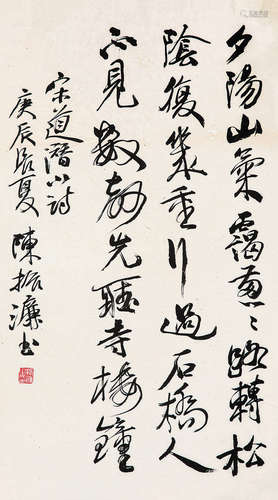 夕陽山氣靄蔥〻路轉松
陰復幾重行過石橋人
不見數聲先聽寺樓鐘
宋道潛小詩
庚辰浴夏 陳振濂書